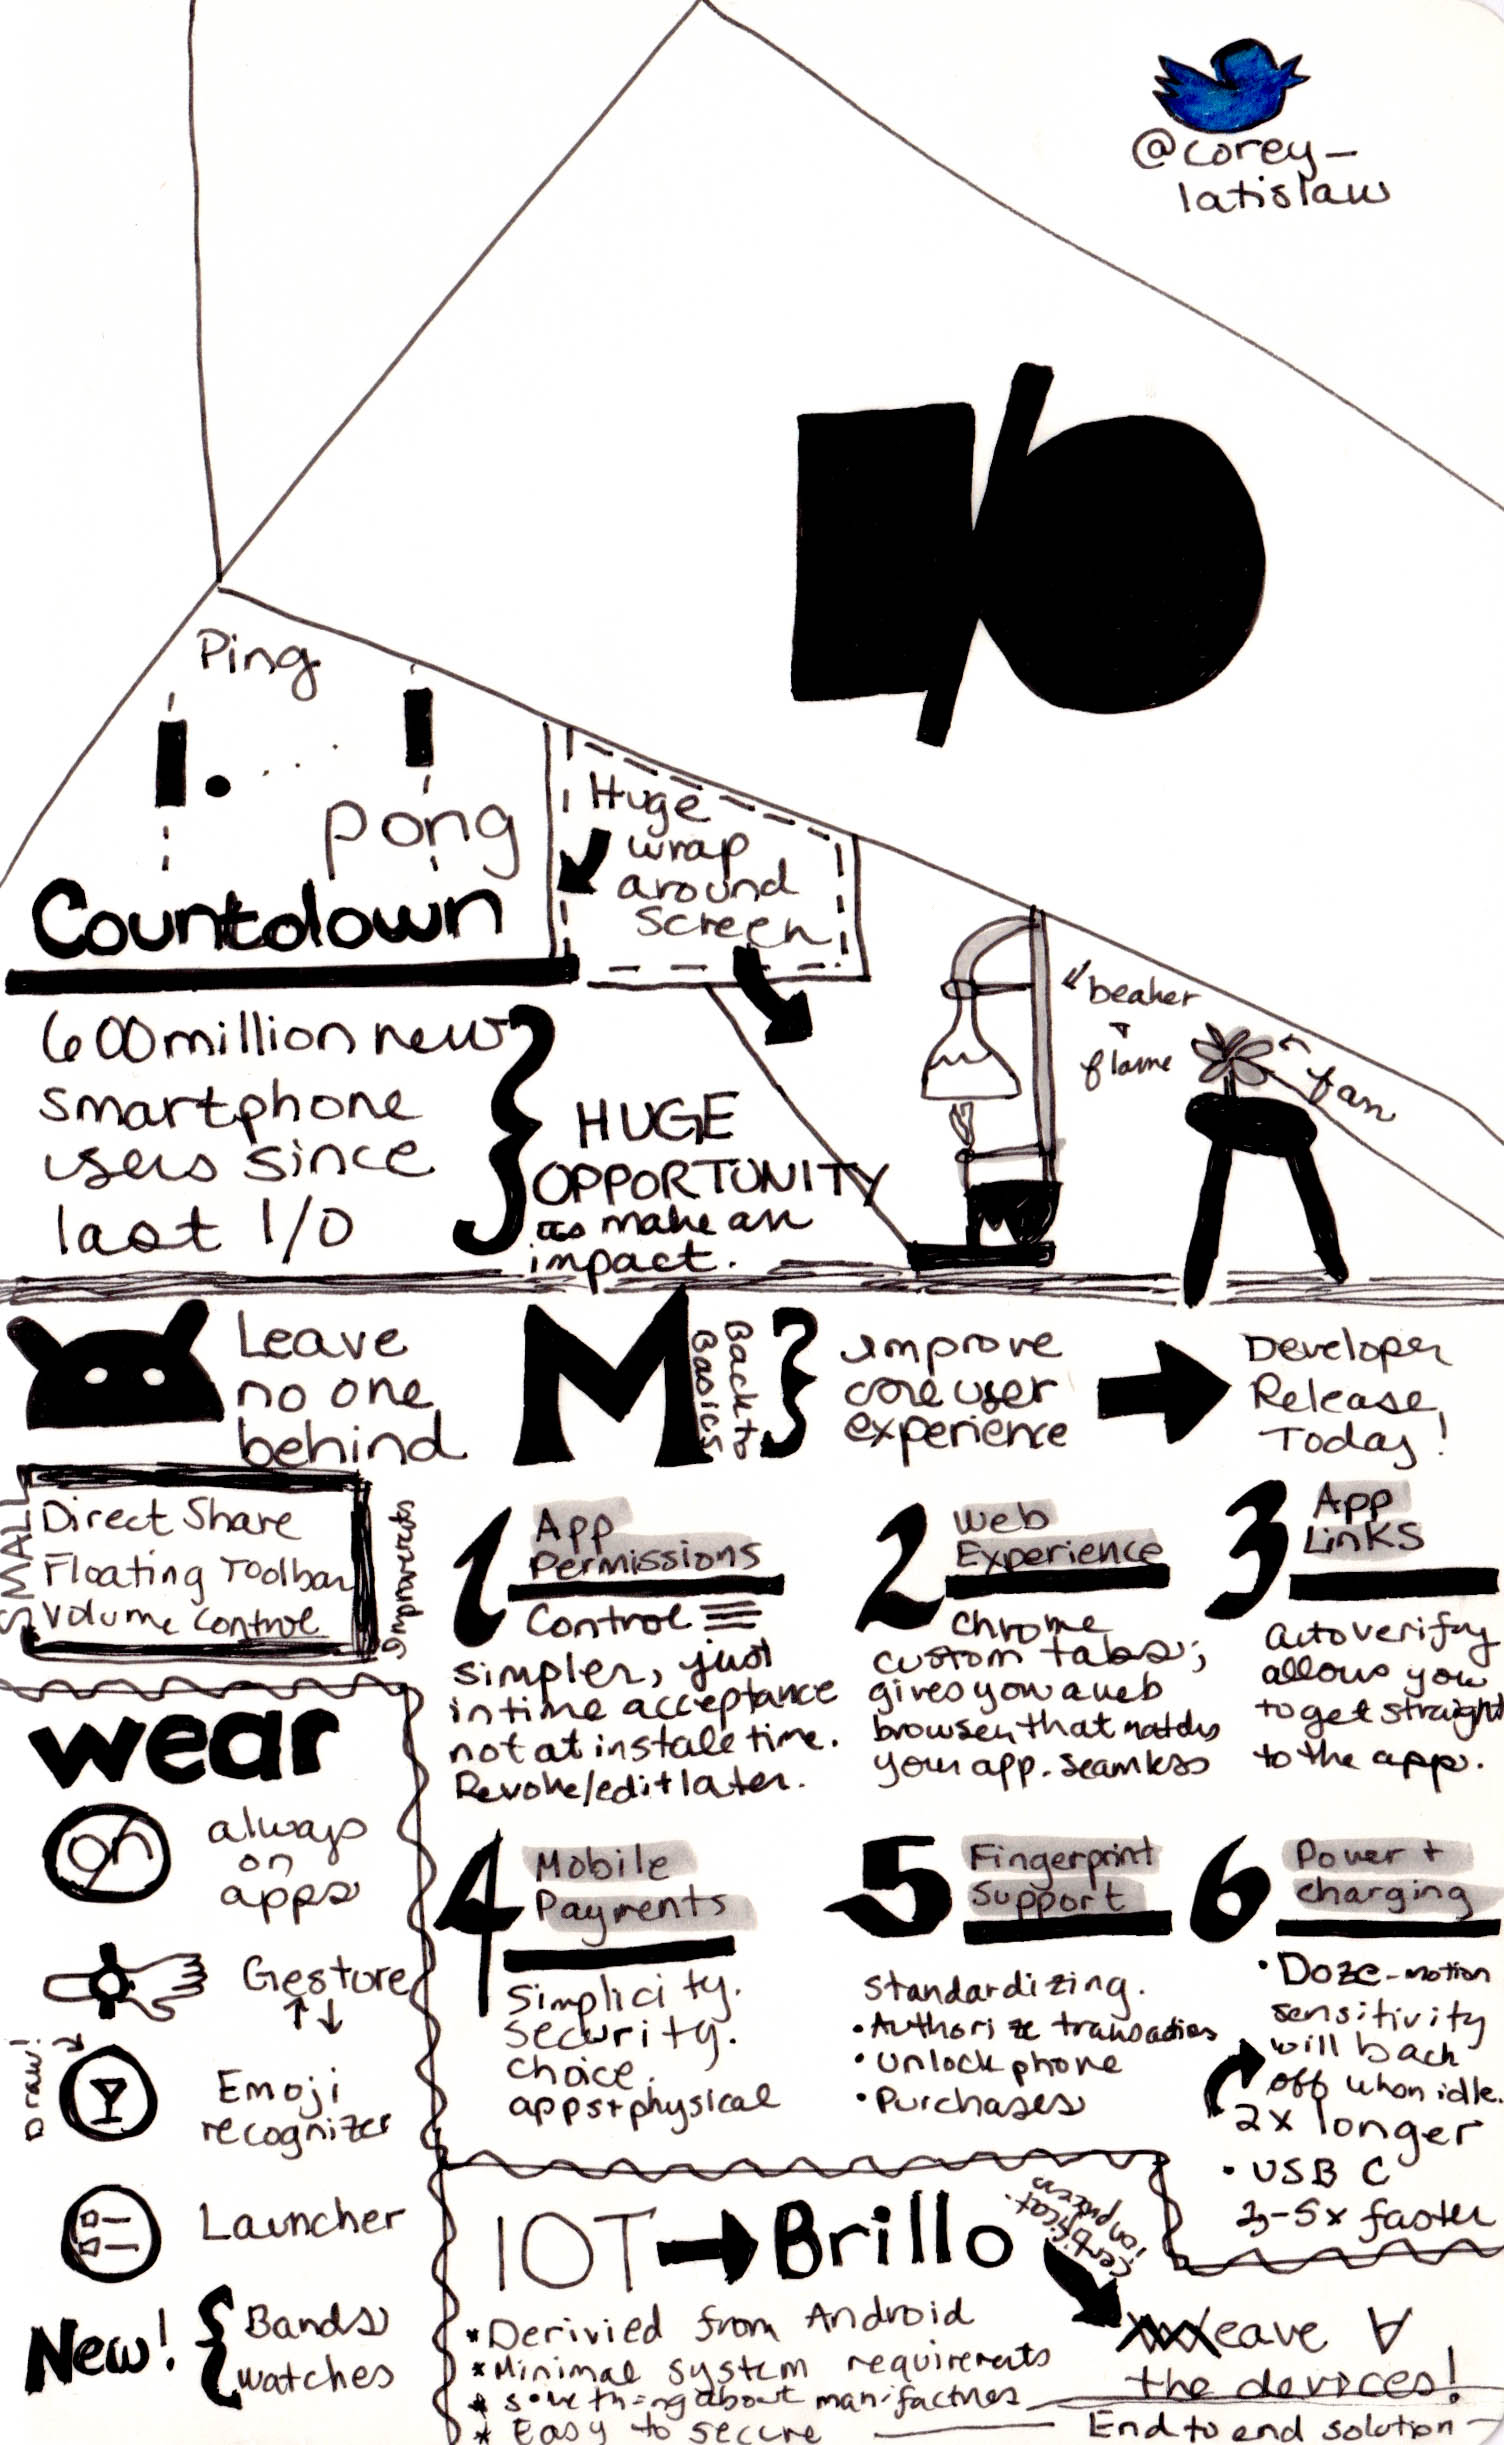 @corey_
latislaw
I/O
Ping
pong
Countdown
Huge
wrap
around
screen
beaker
+
flame
fan
600 million new
smartphone
users since
last I/O
HUGE
OPPORTUNITY
to make an
impact.
Leave
no one
behind
M
Back to
Basics
improve
core user
experience
Developer
Release
Today!
SMALL
Direct Share
Floating Toolbar
Volume control
improvements
1 App
Permissions
Control
simpler, just
in time acceptance
not at install time.
Revoke/edit later.
2 Web
Experience
Chrome
custom tabs;
gives you a web
browser that matches
your app. Seamless
3 App
Links
Autoverify
allows you
to get straight
to the app.
4 Mobile
Payments
Simplicity.
security.
choice.
apps+physical
5 Fingerprint
Support
Standardizing.
• Authorize transactions
• unlock phone
• Purchases
6 Power +
charging
• Doze - motion
sensitivity
will back
off when idle.
2x longer
• USB C
3-5x faster
wear
on
always
on
apps
Gesture
Draw!
Emoji
recognizer
Launcher
New!
Bands
watches
IOT → Brillo
certificat-
ion process.
* Derivied from Android
* Minimal system requirements
* something about manifactures
* Easy to secure
eave ∀
the devices!
End to end solution